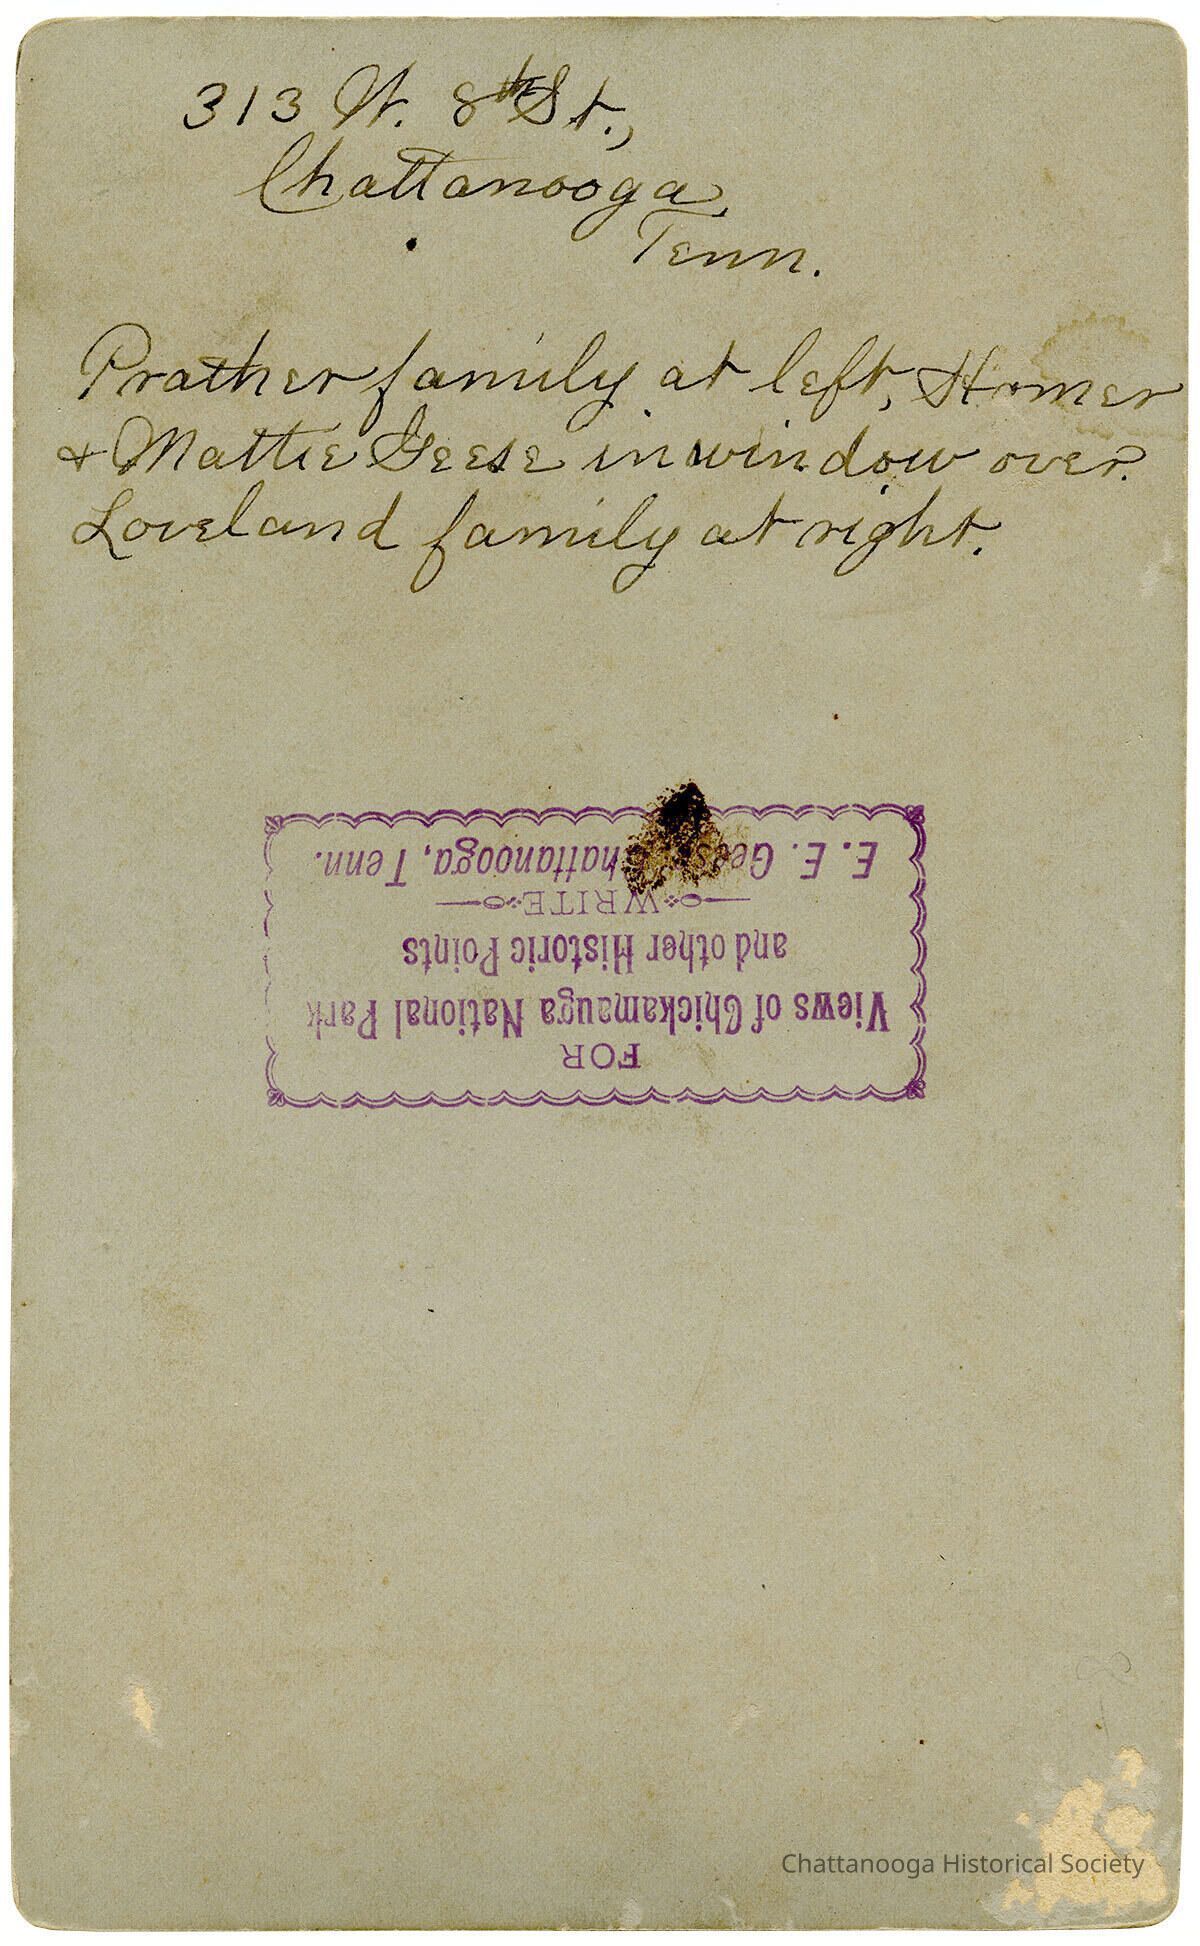 313 W. 8th St.,
Chattanooga,
Tenn.
Prather family at left, Homer
& Mattie Geese in window over.
Loveland family at right.
FOR
Views of Chickamauga National Park
and other Historic Points
WRITE
E. E. Chattanooga, Tenn.
Chattanooga Historical Society